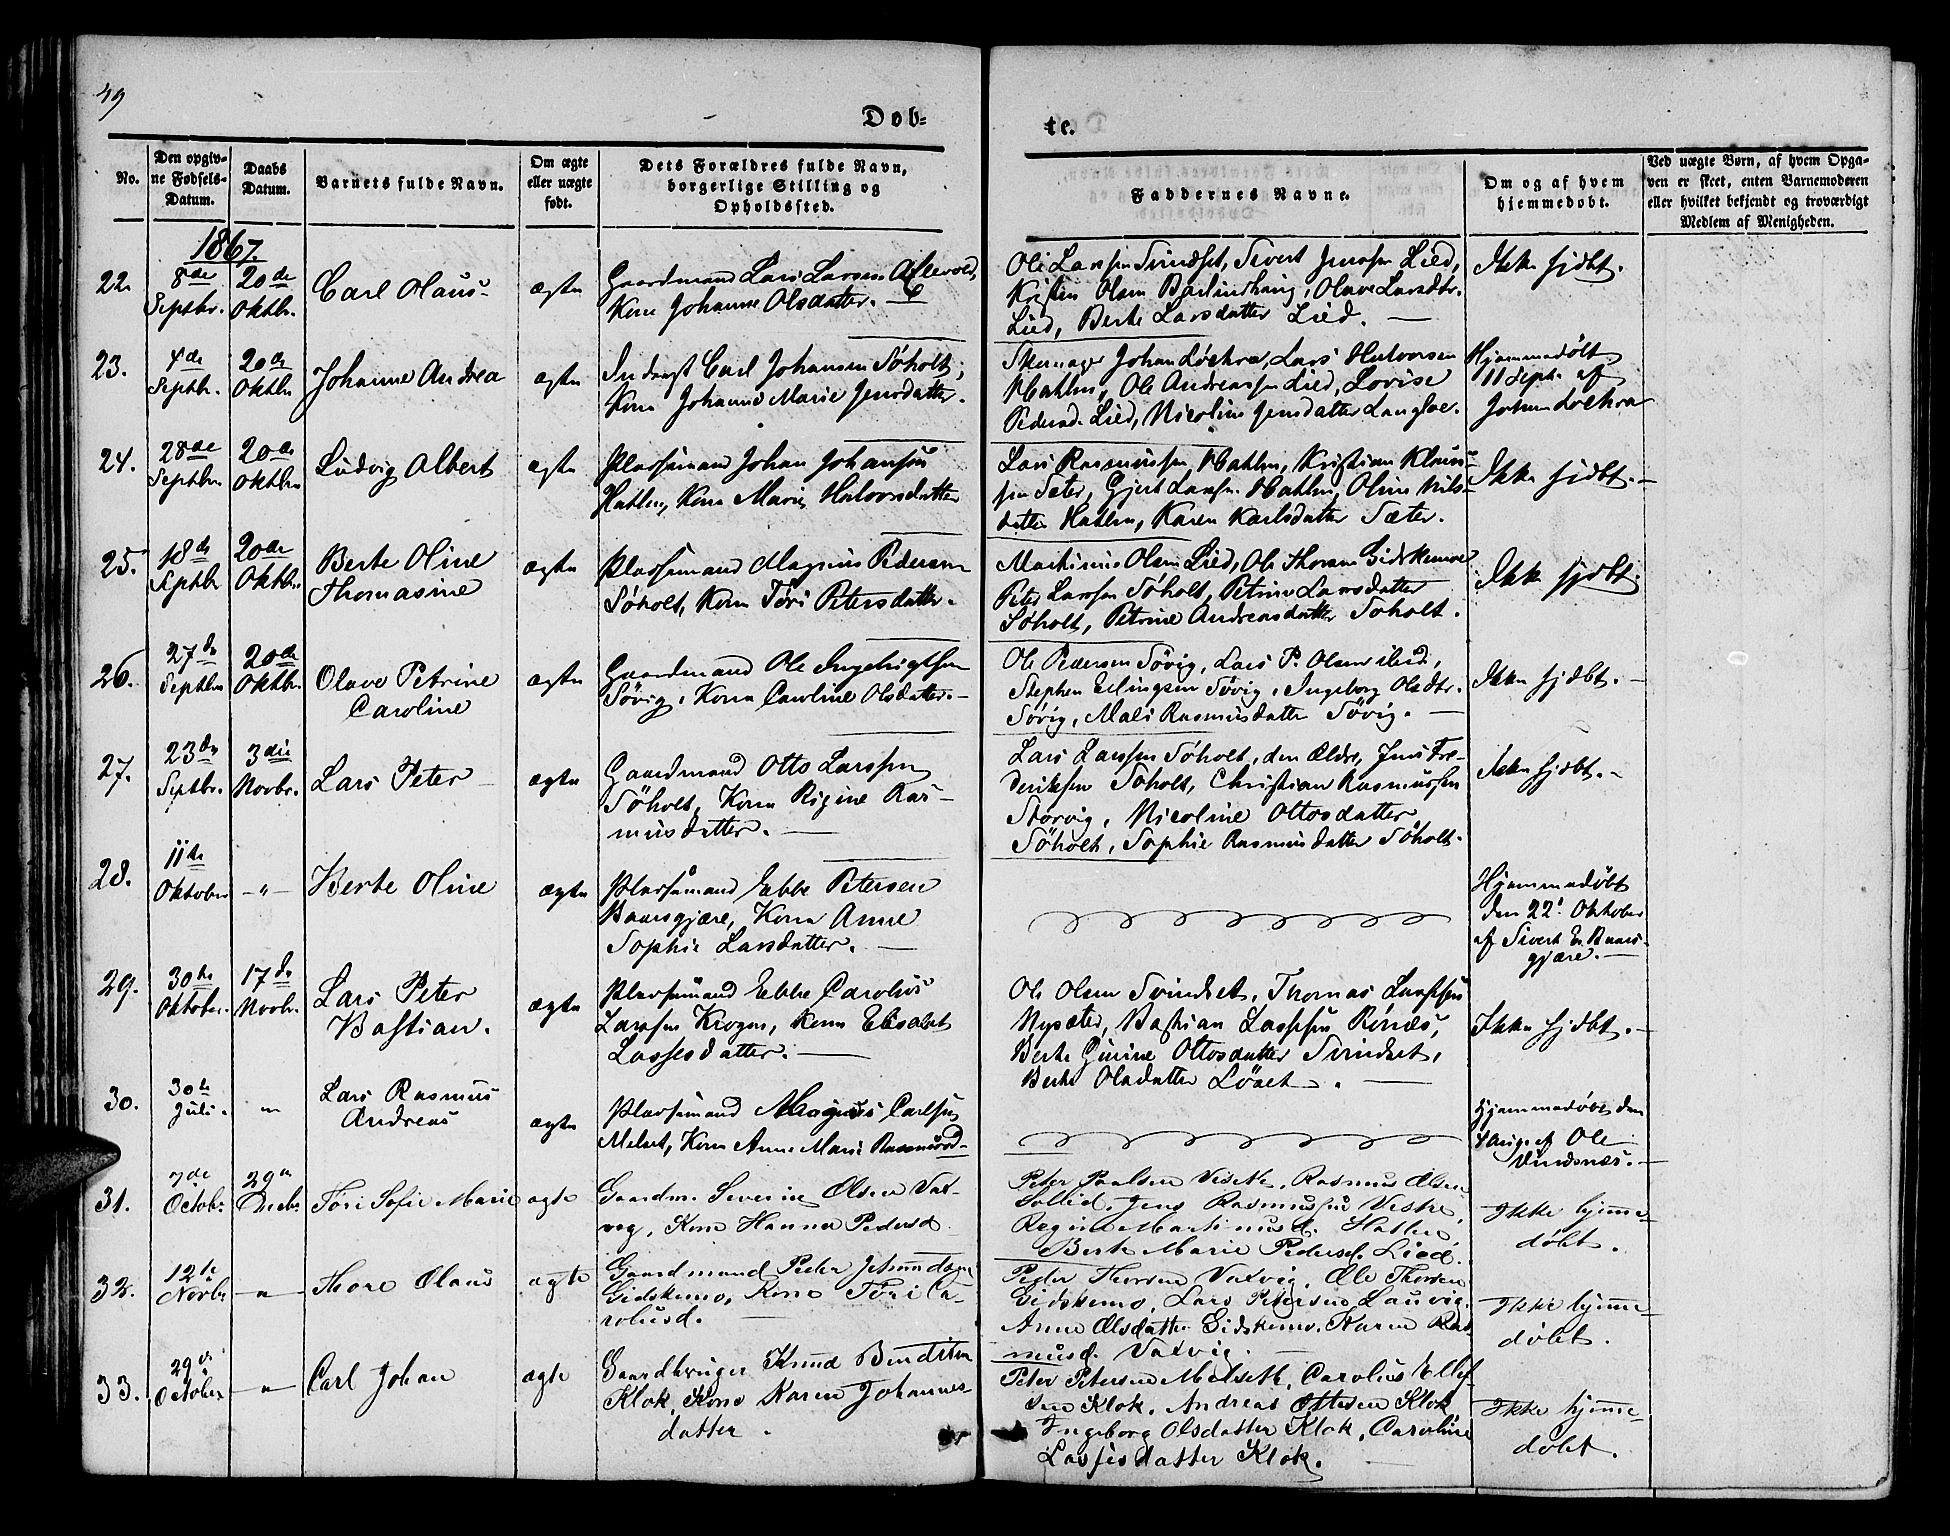 49
Døb=
te.
No.
Den opgiv-
ne Fødsels-
Datum.
Daabs
Datum.
Barnets fulde Navn.
Om ægte
eller uægte
født.
Dets Forældres fulde Navn,
borgerlige Stilling og
Opholdssted.
Faddernes Navne.
Om og af hvem
hjemmedøbt.
Ved uægte Børn, af hvem Opga-
ven er skeet, enten Barnemoderen
eller hvilket bekjendt og troværdigt
Medlem af Menigheden.
1867.
22. 8de Septbr. 20de Oktbr. Carl Olaus ægte
Gaardmand Lars Larsen
Kone Johanne Olsdatter.
Ole Larssen Svindset, Sivert Jenssen Lied,
Kristen Olsen Barlindhaug, Olave Larsdtr.
Lied, Berte Larsdatter Lied.
Ikke hjdbt.
23. 4de Septbr. 20de Oktbr. Johanne Andrea ægte
Inderst Carl Johansen Söholt,
Kone Johanne Marie Jensdatter.
Skomager Johan Löchra, Lars Halvorsen
Hatlen, Ole Andreassen Lied, Lovise
Pedersd. Lied, Nicoline Jensdatter Langloe.
Hjemmedöbt
11 Septr. af
Johan Löchra
24. 28de Septbr 20de Oktbr. Ludvig Albert ægte
Pladsemand Johan Johansen
Hatlen, Kone Marie Halvorsdatter
Lars Rasmussen Hatlen, Kristian Klaus-
sen Sæter, Gjert Larssen Hatlen, Oline Nils-
datter Hatlen, Karen Karlsdatter Sæter.
Ikke hjdbt.
25. 18de Septbr 20de Oktbr. Berte Oline
Thomasine ægte
Pladsemand Magnus Pedersen
Söholt, Kone Töri Petersdatter.
Martinus Olsen Lied, Ole Thorsen Gidskemoe
Peter Larssen Söholt, Petrine Larsdatter
Söholt, Petrine Andreasdatter Söholt.
Ikke hjdbt.
26. 27de Septbr 20de Oktbr. Olave Petrine
Caroline ægte
Gaardmand Ole Ingebrigtsen
Sövig, Kone Caroline Olsdatter.
Ole Pedersen Sövig, Lars P. Olsen
Stephen Erlingsen Sövig, Ingeborg Olsdtr.
Sövig, Mali Rasmusdatter Sövig.
Ikke hjdbt.
27. 23de Septbr. 3die Novbr. Lars Peter ægte
Gaardmand Otto Larssen
Söholt, Kone Rigine Ras-
musdatter.
Lars Larssen Söholt, den Ældre, Jens Fre-
deriksen Söholt, Christian Rasmussen
Störvig, Nicoline Ottosdatter
Söholt, Sophie Rasmusdatter Söholt.
Ikke hjdbt.
28. 11te Oktober -"- Berte Oline ægte
Pladsemand Ebbe Petersen
Baarsgjære, Kone Anne
Sophie Larsdatter.
Hjemmedöbt
den 22. Oktober
af Sivert E. Baars-
gjære.
29. 30te Oktober. 17de Novbr. Lars Peter
Bastian. ægte
Pladsemand Ebbe Carolius
Larssen Krogen, Kone Elisabet
Lassesdatter.
Ole Olsen Svindset, Thomas Lassesen
Nysæter, Bastian Lassesen Rönæs,
Berte Gurine Ottosdatter Svindset,
Berte Olsdatter Löset.
Ikke hjdbt.
30. 30te Juli. " Lars Rasmus
Andreas ægte
Pladsemand Magnus Carlsen
Melset, Kone Anne Marie Rasmusd-
Hjemmedöbt den
4 Aug. af Ole
Vindsnæs.
31. 7de Octob. 29de Decbr. Töri Sofie Marie ægte
Gaardm. Severin Olsen Vat-
veg, Kone Hanna Pedersd.
Peter Paulsen Viseth, Rasmus Olsen
Sollid, Jens Rasmussen Vestre,
Regine Martinusd. Hatlen
Berte Marie Pedersd. Lied.
Ikke hjemme-
döbt.
32. 12te Novbr " Thore Olaus ægte
Gaardmand Peder
Gidskemo, Kone Töri Ca-
rolusd.
Peder Thorsen Vatvig, Ole Thorsen
Gidskemo, Lars Petersen Lauvig.
Anne Olsdatter Gidskemo, Karen Ras-
musd. Vatvig.
Ikke hjemme-
döbt.
33. 29de October " Carl Johan ægte
Gaardbruger Knud Bendiksen
Klok, Kone Karen Johannes-
datter.
Peter Petersen Melseth, Carolus Ellef-
sen Klok, Andreas Ottesen Klok
Ingeborg Olsdatter Klok, Caroline
Lassesdatter Klok.
Ikke hjemme-
döbt.